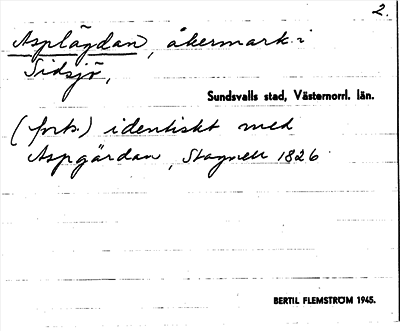 2.
Asplägdan, åkermark i
Sidsjö,
Sundsvalls stad, Västernorrl. län.
(forts.) identiskt med
Aspgärdan, Stagnell 1826
BERTIL FLEMSTRÖM 1945.